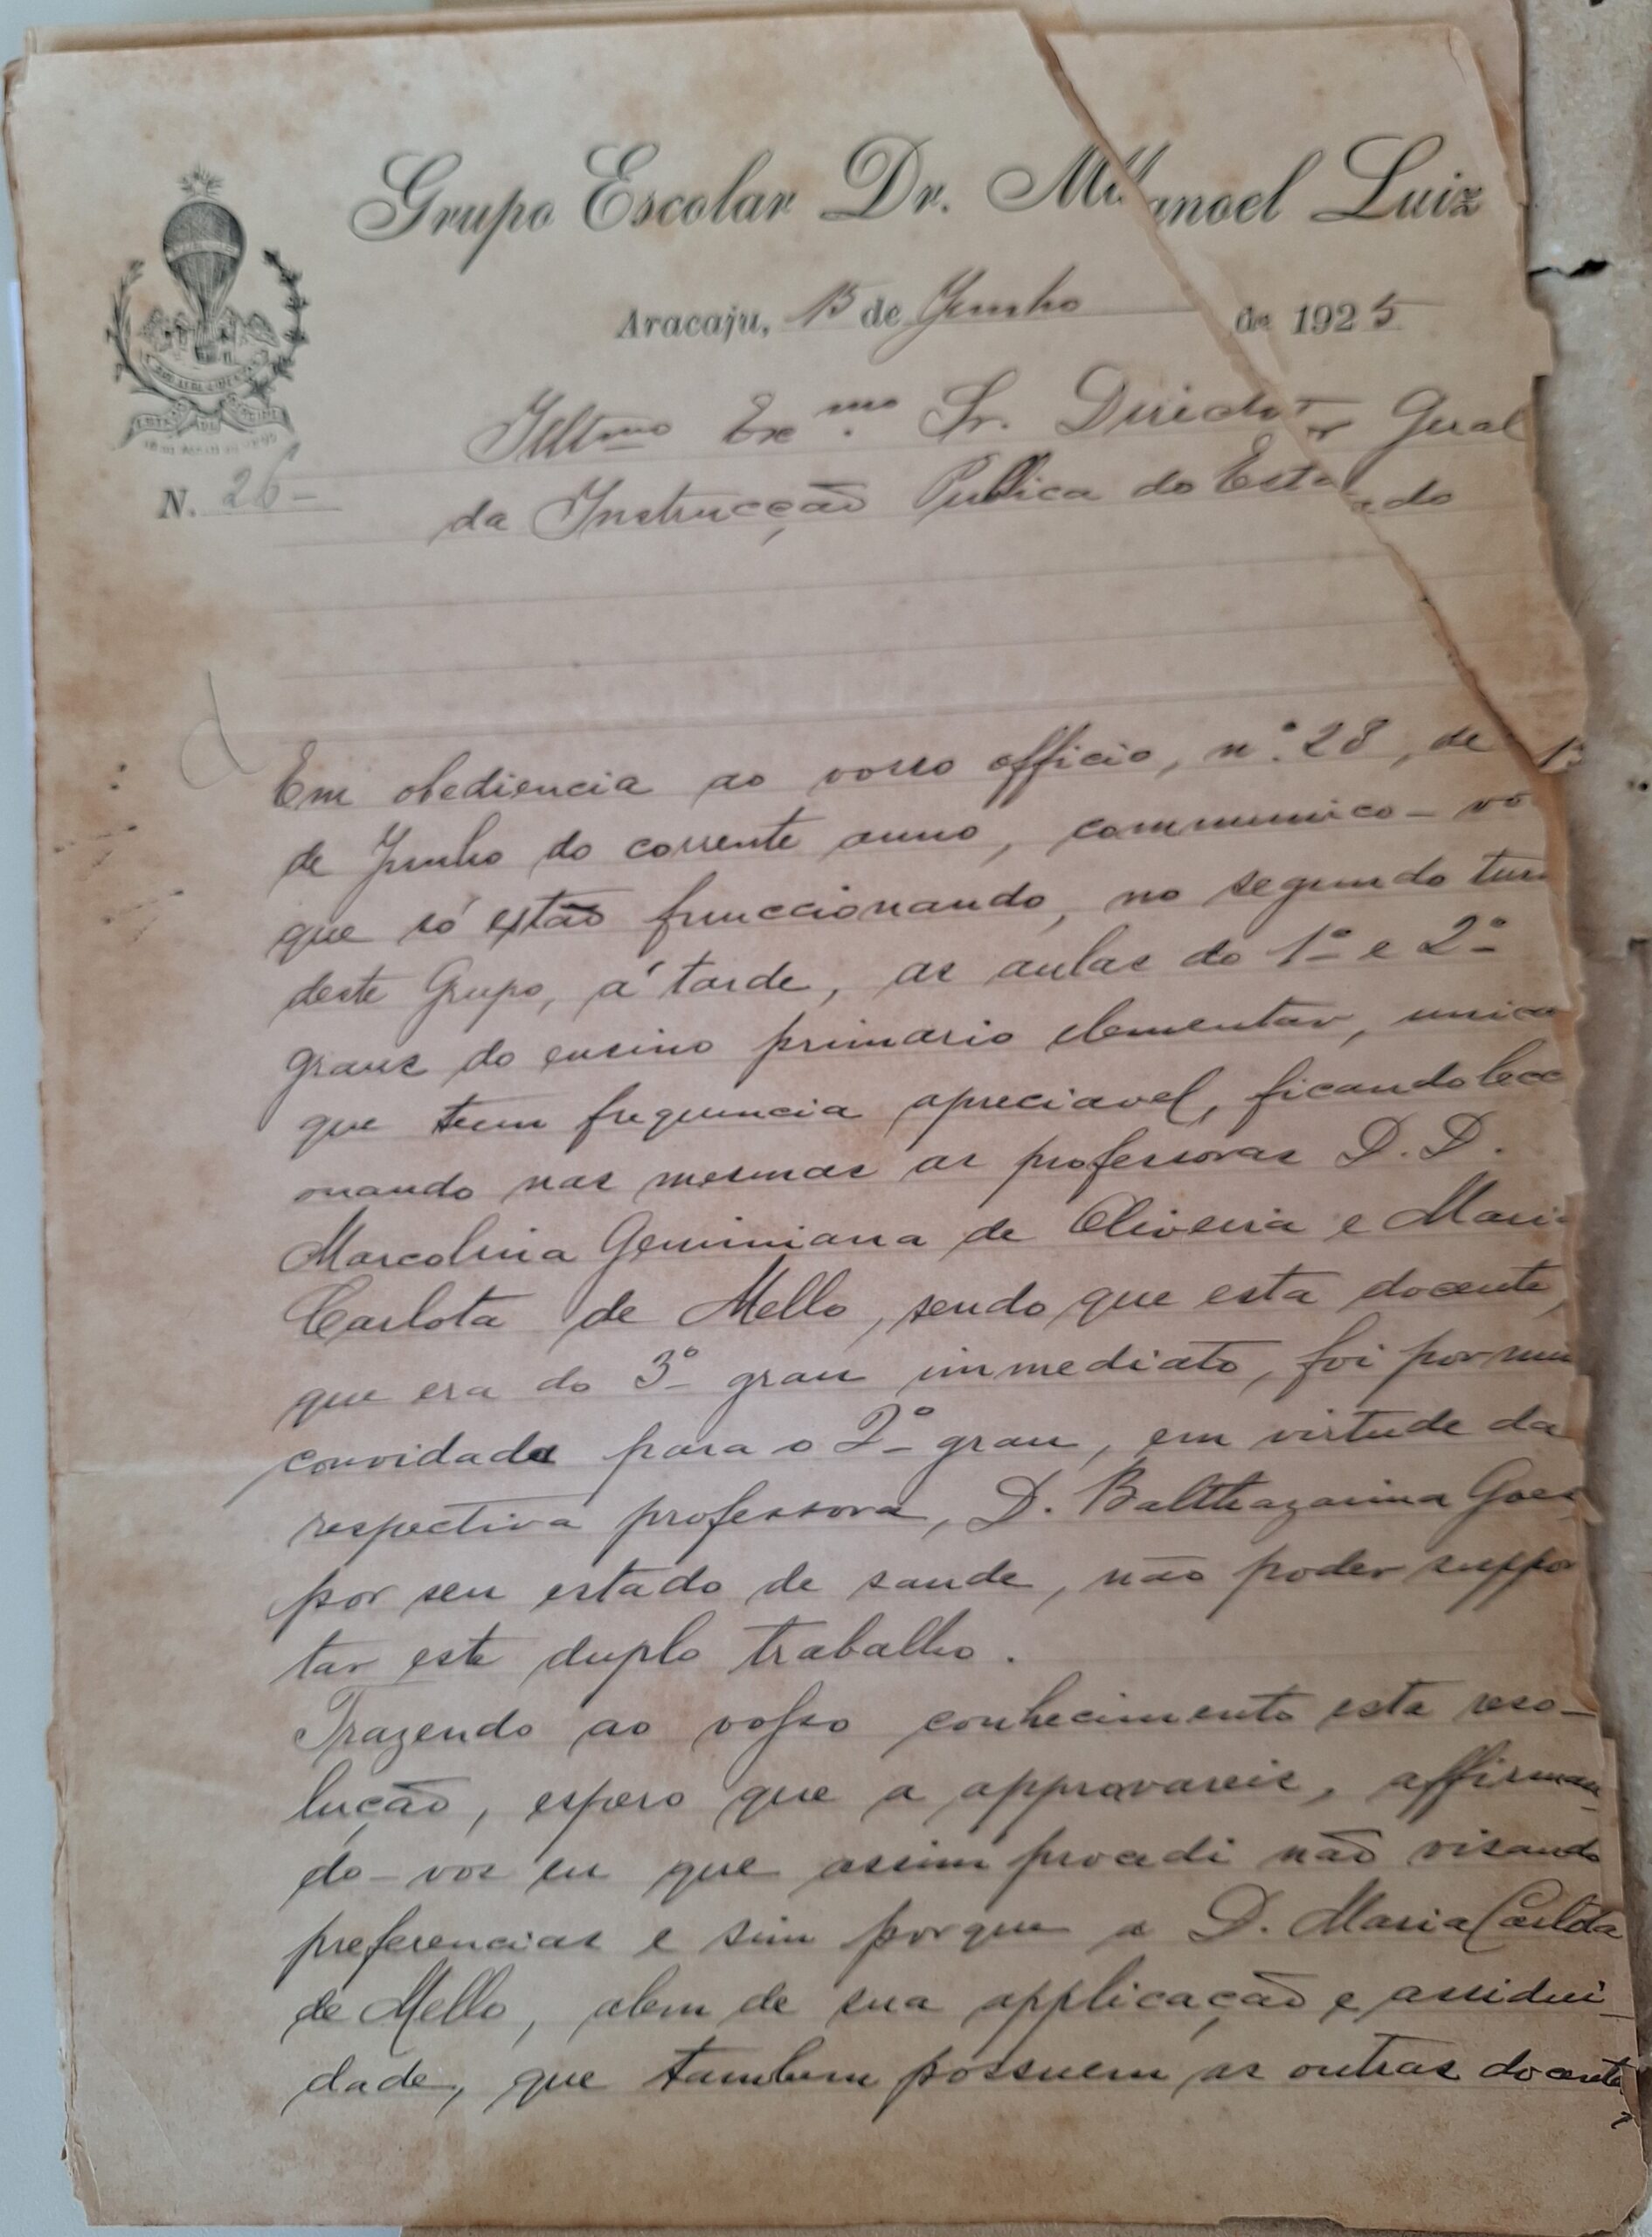 Grupo Escolar Dr. Manoel Luiz
Aracaju, 15 de Junho de 1925
Illtmo Exmo. Sr. Director Geral
da Instrucção Publica do Estado
N. 26-
Em obediencia ao vosso officio, nº. 28, de
de Junho do corrente anno, communico-vo
que só estão funccionando, no segundo tur
deste Grupo, á tarde, as aulas do 1º e 2º
graus do ensino primario elementar, unica
que teem frequencia apreciavel, ficando lecc
onando nas mesmas as professoras D. D.
Marcolina Geminiana de Oliveira e Mari
Carlota de Mello, sendo que esta docente,
que era do 3º grau immediato, foi por mim
convidada para o 2º grau, em virtude da
respectiva professora, D. Balthazarina Goes
por seu estado de saude, não poder suppor
tar este duplo trabalho.
Trazendo ao vosso conhecimento esta reso-
lução, espero que a approvareis, affirman-
do-vos eu que assim procedi não visando
preferencias e sim porque a D. Maria Carlota
de Mello, alem de sua applicação e assidui-
dade, que tambem possuem as outras docentes,